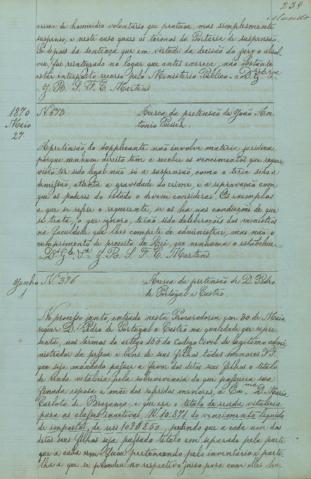 234
crime de homicidio voluntario que praticou, mas simplesmente
suspenso, e neste caso quaes os termos da Portaria de suspensão
E depois da sentença que em virtude da decisão do jury o absol-
veu, foi reintegrado no logar que antes exercia, não obstante
estar interposto recurso pelo Ministerio Publico = D. G.
J. B. S. F. C. Martens
1870
Maio
27
Nº 673
Ácerca da pretensão de João An-
tonio
A pretensão do supplicante não involve materia juridica
porque nenhum direito tem a receber os vencimentos que requer
visto ter sido legal não só a suspensão, como o teria sido a
demissão, attenta a gravidade do crime, e a reprovação com
que os poderes do Estado o devem considerar. Os exemplos
a que se refere o requerente, se os ha nas condições de que
se trata, o que ignoro, terão sido deliberações dos ministros
na faculdade que lhes compete de administrar, mas não o
cumprimento de preceito de Lei, que nenhuma o estabelece
J. B. S. F. C. Martens
Junho
Nº 396
Ácerca da pretensão de D. Pedro
de Portugal e Castro
No processo junto, entrado nesta Procuradoria em 30 de Maio
requer D. Pedro de Portugal e Castro na qualidade que repre-
senta, nos termos do artigo 138 do Codigo Civil de legitimo admi-
nistrador da pessoa e bens de seus filhos todos menores
que seja mandado passar a favor dos ditos seus filhos o titulo
de renda vitalicia pela sobrevivencia da que professou sua
finada esposa e mãe dos supridos menores, a Exma. D. Maria
Carlota de Bragança, e que era o titulo de renda vitalicia
para as classes inactivas Nº 10.871 do vencimento liquido
de impostos, de reis 103$250, pedindo que a cada um dos
ditos seus filhos seja passado titulo em separado pela parte
que a cada um ficou pertencendo pelo inventario e parti-
lha a que se procedeu no respectivo juizo